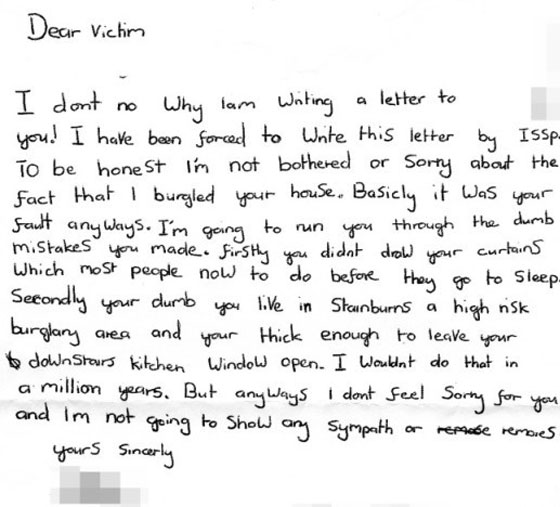 Dear Victim
I dont no Why Iam Writing a letter to
you! I have been forced to Write this letter by ISSP.
To be honest I'm not bothered or Sorry about the
fact that I burgled your house. Basicly it was your
fault anyways. I'm going to run you through the dumb
mistakes you made. firstly you didnt draw your curtains
Which most people now to do before they go to Sleep.
Secondly your dumb you live in Stainburns a high risk
burglary area and your thick enough to leave your
downstairs kitchen Window open. I Wouldnt do that in
a million years. But anyWays I dont feel Sorry for you
and Im not going to Show any Sympath or remores
yours Sincerly